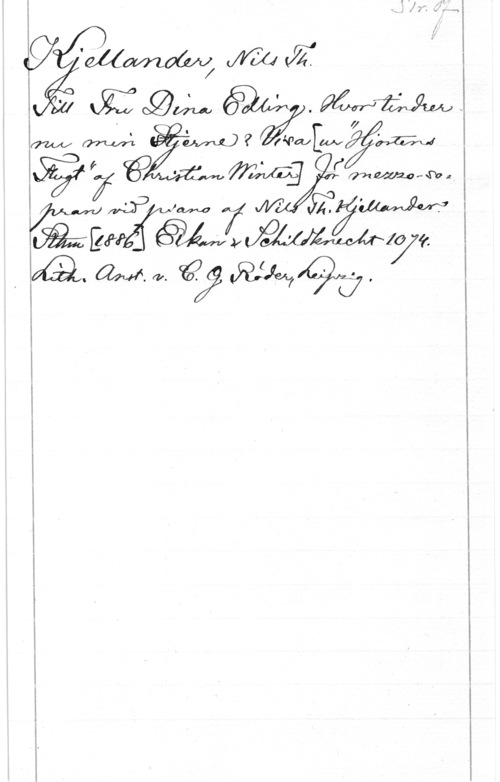 Str. Of
Kjellander, Nils Th.
Till Fru Dina Edling. Hvor tindrer
nu min Stjerne? Visa [ur "Hjortens
Flugt" af Christian Winter] för mezzo-so-
pran vid piano af Nils Th. Kjellander.
Sthm [1886] Elkan & Schildknecht 1074.
Lith. Anst. v. C. G. Röder, Leipzig.